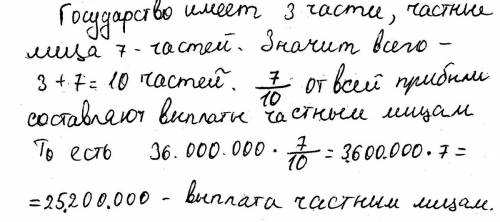 Государство имеет 3 части, частные
лица 7 - частей. Значит всего -
3 + 7 = 10 частей. 7/10 от всей прибыли
составляют выплаты частным лицам
То есть 36.000.000 · 7/10 = 3600.000 · 7 =
= 25.200.000 - выплата частным лицам.